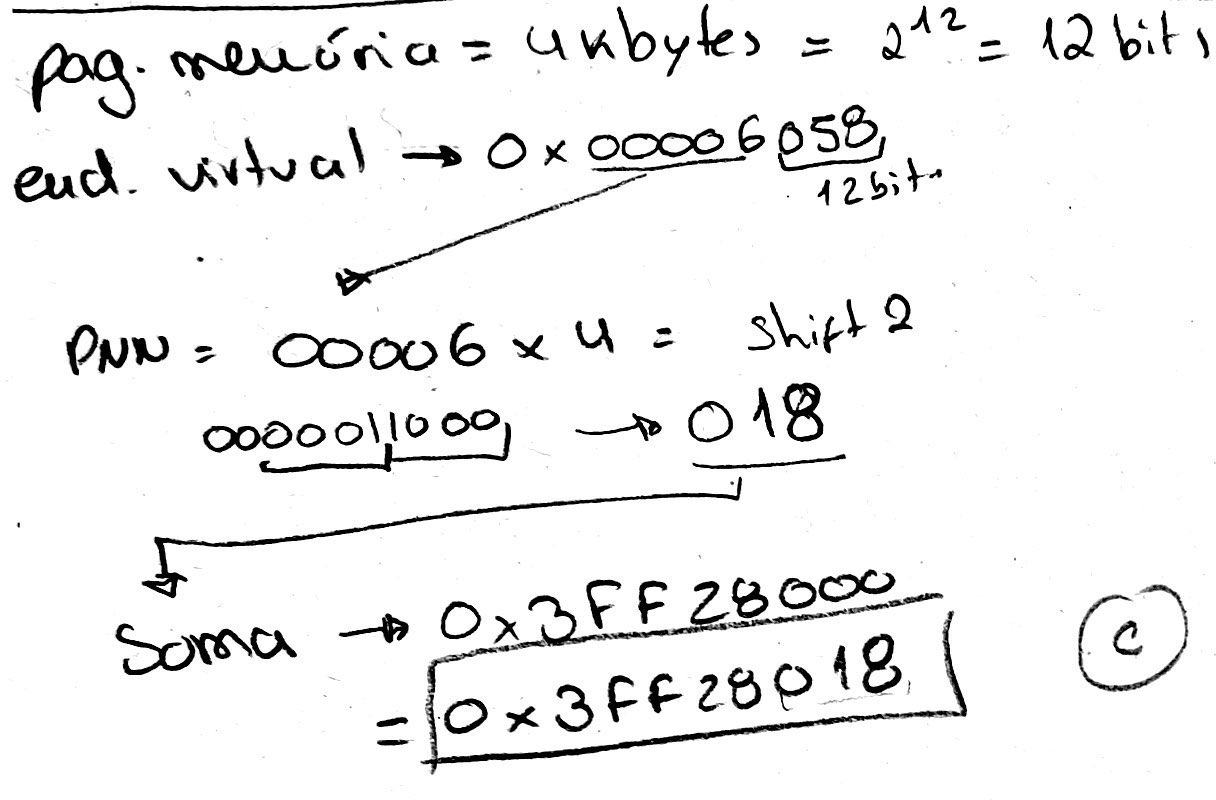 pag. memória = 4kbytes = 2^12 = 12 bits
end. virtual → 0x00006058
12 bits
PNN = 00006 x 4 = shift 2
0000011000 → 018
Soma → 0x3FF28000
= 0x3FF28018
C